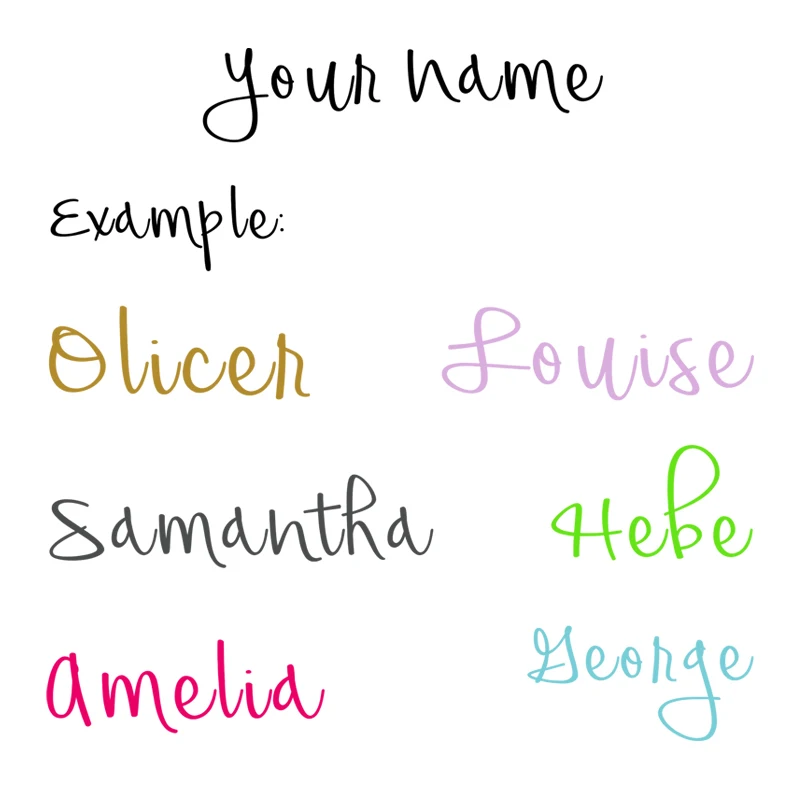 Your name
Example:
Olicer Louise
Samantha Hebe
Amelia George